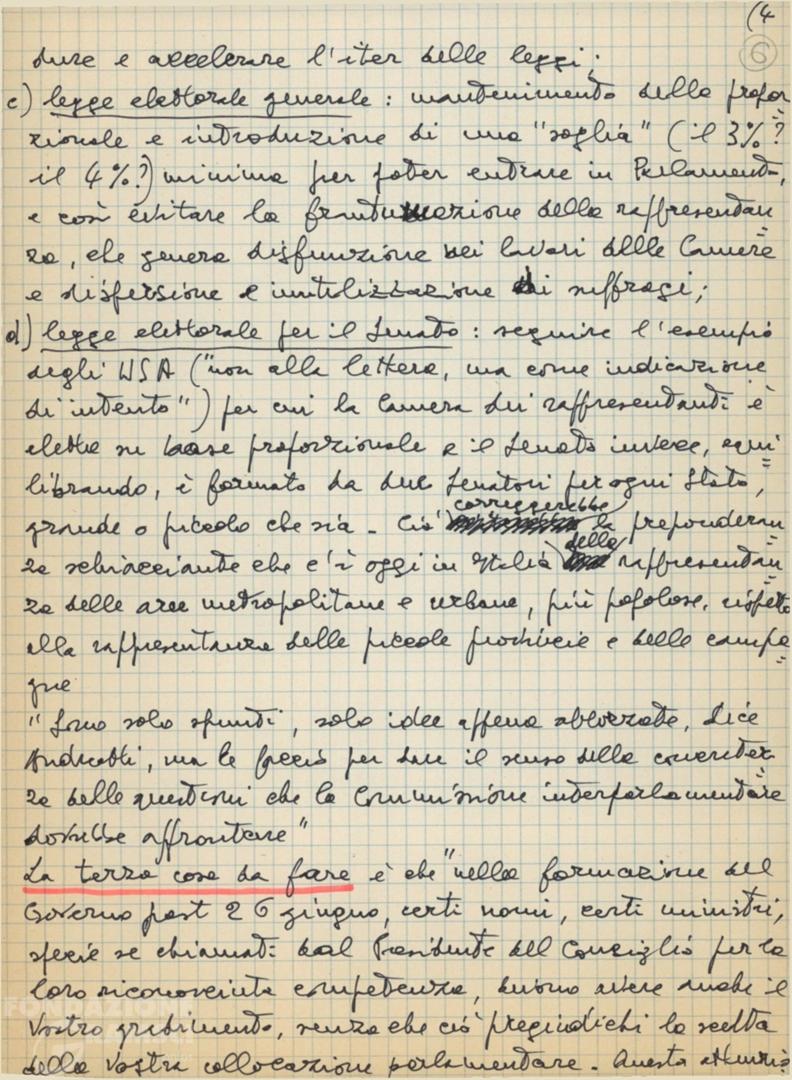 (4
6
dure e accelerare l'iter delle leggi;
c) legge elettorale generale: mantenimento della propor=
zionale e introduzione di una "soglia" (il 3%?
il 4%?) minima per poter entrare in Parlamento,
e così evitare la frantumazione della rappresentan=
za, che genera disfunzione nei lavori delle Camere
e dispersione e inutilizzazione di suffragi;
d) legge elettorale per il Senato: seguire l'esempio
degli USA ("non alla lettera, ma come indicazione
di intento") per cui la Camera dei rappresentanti è
eletta su base proporzionale e il Senato invece, equi=
librando, è formato da due Senatori per ogni Stato,
grande o piccolo che sia. Ciò correggerebbe la preponderan=
za schiacciante che c'è oggi in Italia della rappresentan=
za delle aree metropolitane e urbane, più popolose, rispetto
alla rappresentanza delle piccole provincie e delle campa=
gne
"Sono solo spunti, solo idee appena abbozzate, dice
Andreotti, ma le faccio per dare il senso della concretez=
za delle questioni che la Commissione interparlamentare
dovrebbe affrontare"
La terza cosa da fare è che "nella formazione del
Governo post 26 giugno, certi nomi, certi ministri,
specie se chiamati dal Presidente del Consiglio per la
loro riconosciuta competenza, buono avere anche il
Vostro gradimento, senza che ciò pregiudichi la scelta
della Vostra collocazione parlamentare. Questa
FONDAZIONE
GRAMSCI